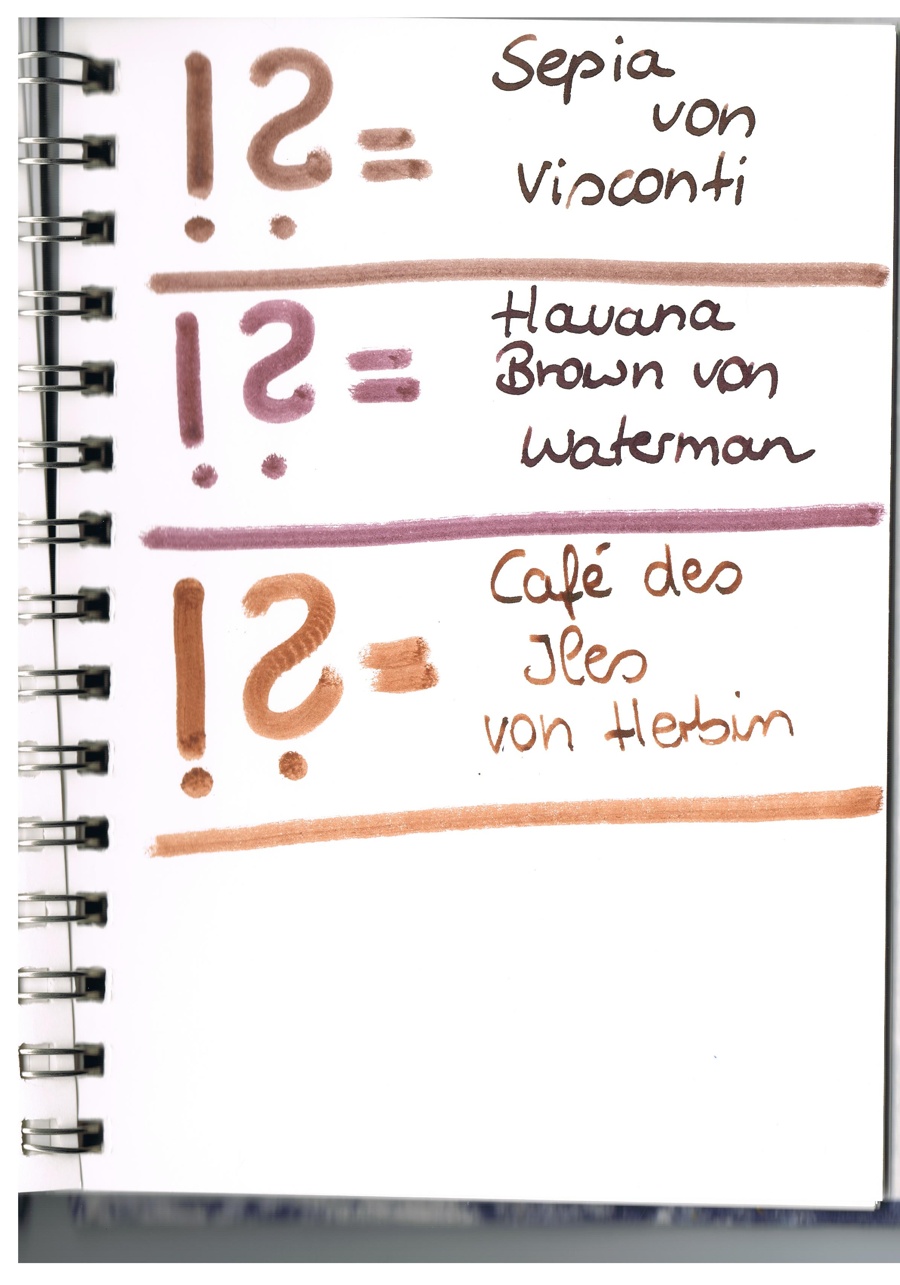 !? = Sepia
von
Visconti
!? = Havana
Brown von
Waterman
!? = Café des
Iles
von Herbin